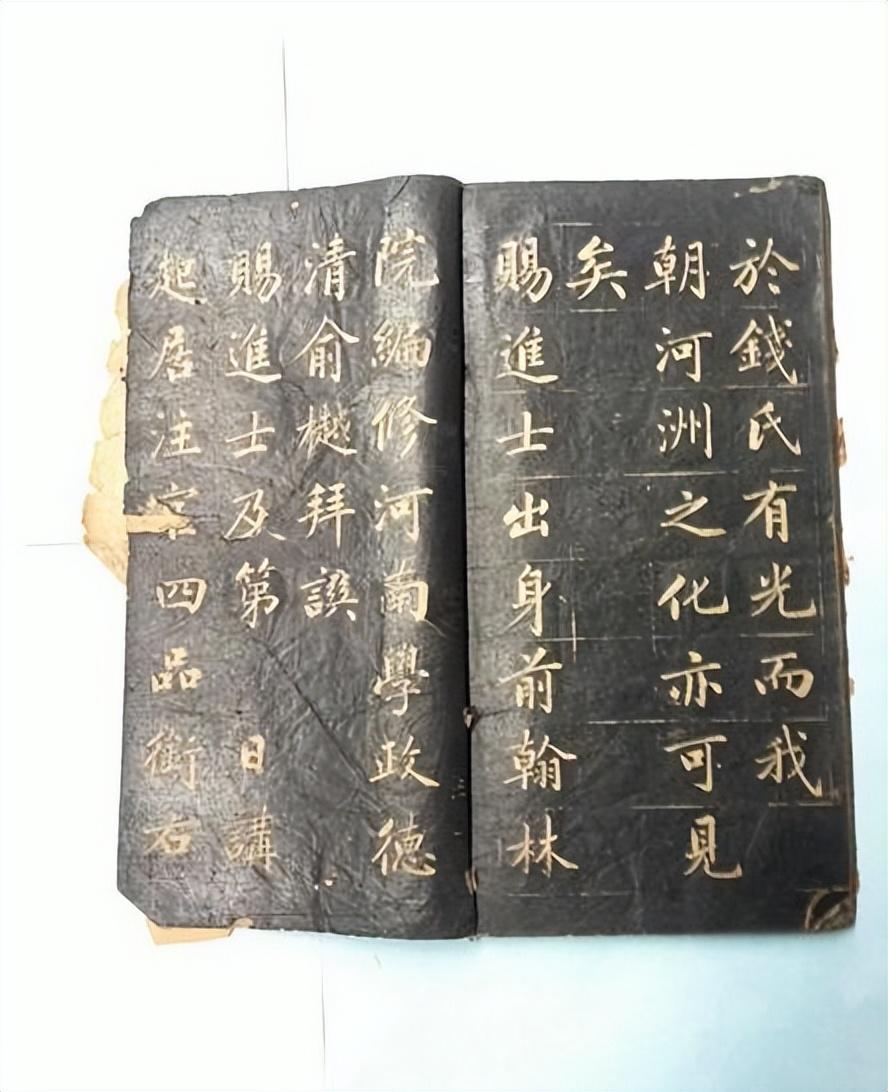 於錢氏有光而我
朝河洲之化亦可見
矣
賜進士出身前翰林
院編修河南學政德
清俞樾拜譔
賜進士及第 日講
起居注官四品銜右